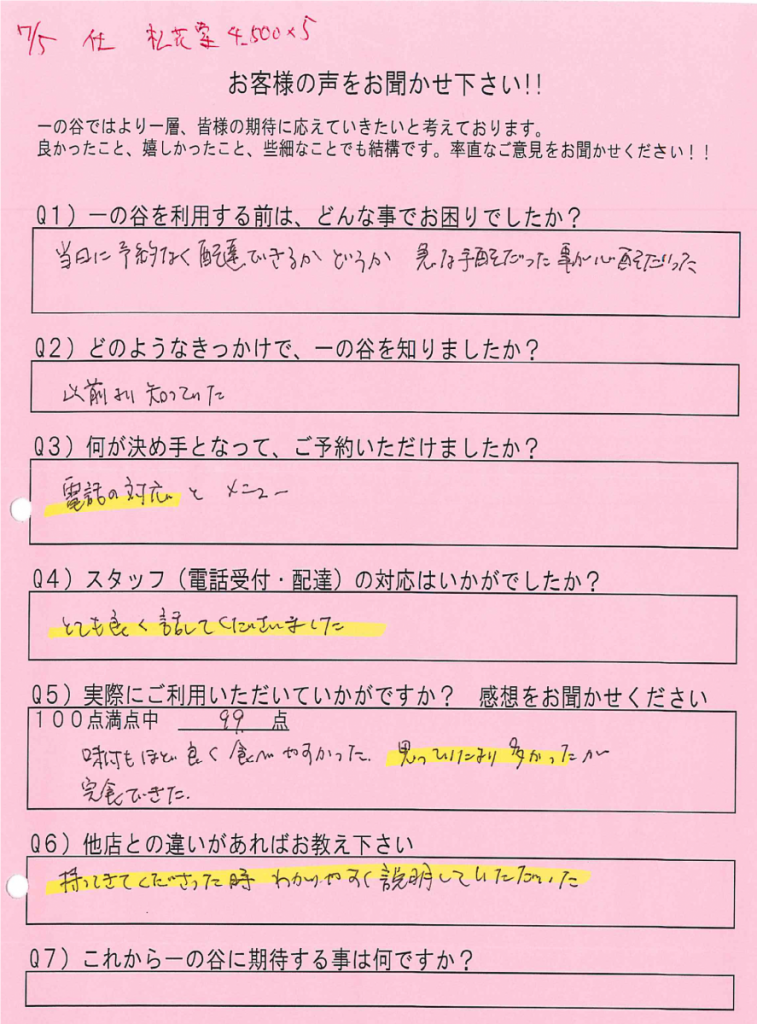 7/5 仕 松花堂 4,500×5
お客様の声をお聞かせ下さい!!
一の谷ではより一層、皆様の期待に応えていきたいと考えております。
良かったこと、嬉しかったこと、些細なことでも結構です。率直なご意見をお聞かせください!!
Q1)一の谷を利用する前は、どんな事でお困りでしたか?
当日に予約なく配達できるかどうか 急な手配だった事が心配だった
Q2)どのようなきっかけで、一の谷を知りましたか?
以前より知っていた
Q3)何が決め手となって、ご予約いただけましたか?
電話の対応と メニュー
Q4)スタッフ(電話受付・配達)の対応はいかがでしたか?
とても良く話してくださいました
Q5)実際にご利用いただいていかがですか? 感想をお聞かせください
100点満点中 99 点
味付もほど良く食べやすかった. 思っていたより多かったが
完食できた.
Q6)他店との違いがあればお教え下さい
持ってきてくださった時 わかりやすく説明していただいた
Q7)これから一の谷に期待する事は何ですか?